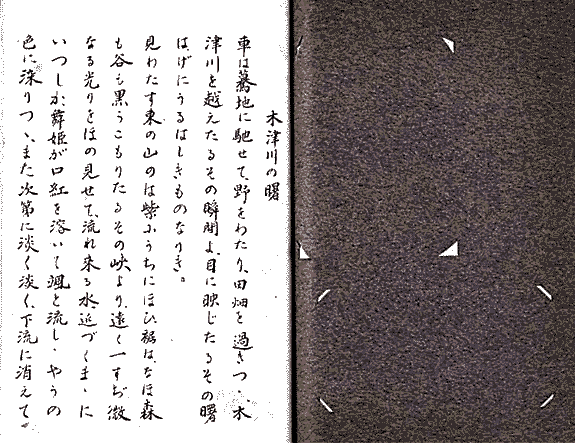 木津川の曙
車は驀地に馳せて、野をわたり、田畑を過ぎつゝ、木
津川を越えたるその瞬間よ、目に映じたるその曙
は、げにうるはしきものなりき。
見わたす東の山のは紫ふうちににほひ裾はなほ森
も谷も黒うこもりたるその峡より、遠く一すぢ微
なる光りをほの見せて、流れ来る水、近づくまゝに
いつしか舞姫が口紅を溶いて颯と流し、やうの
色に染りつゝ、また次第に淡く淡く、下流に消えて